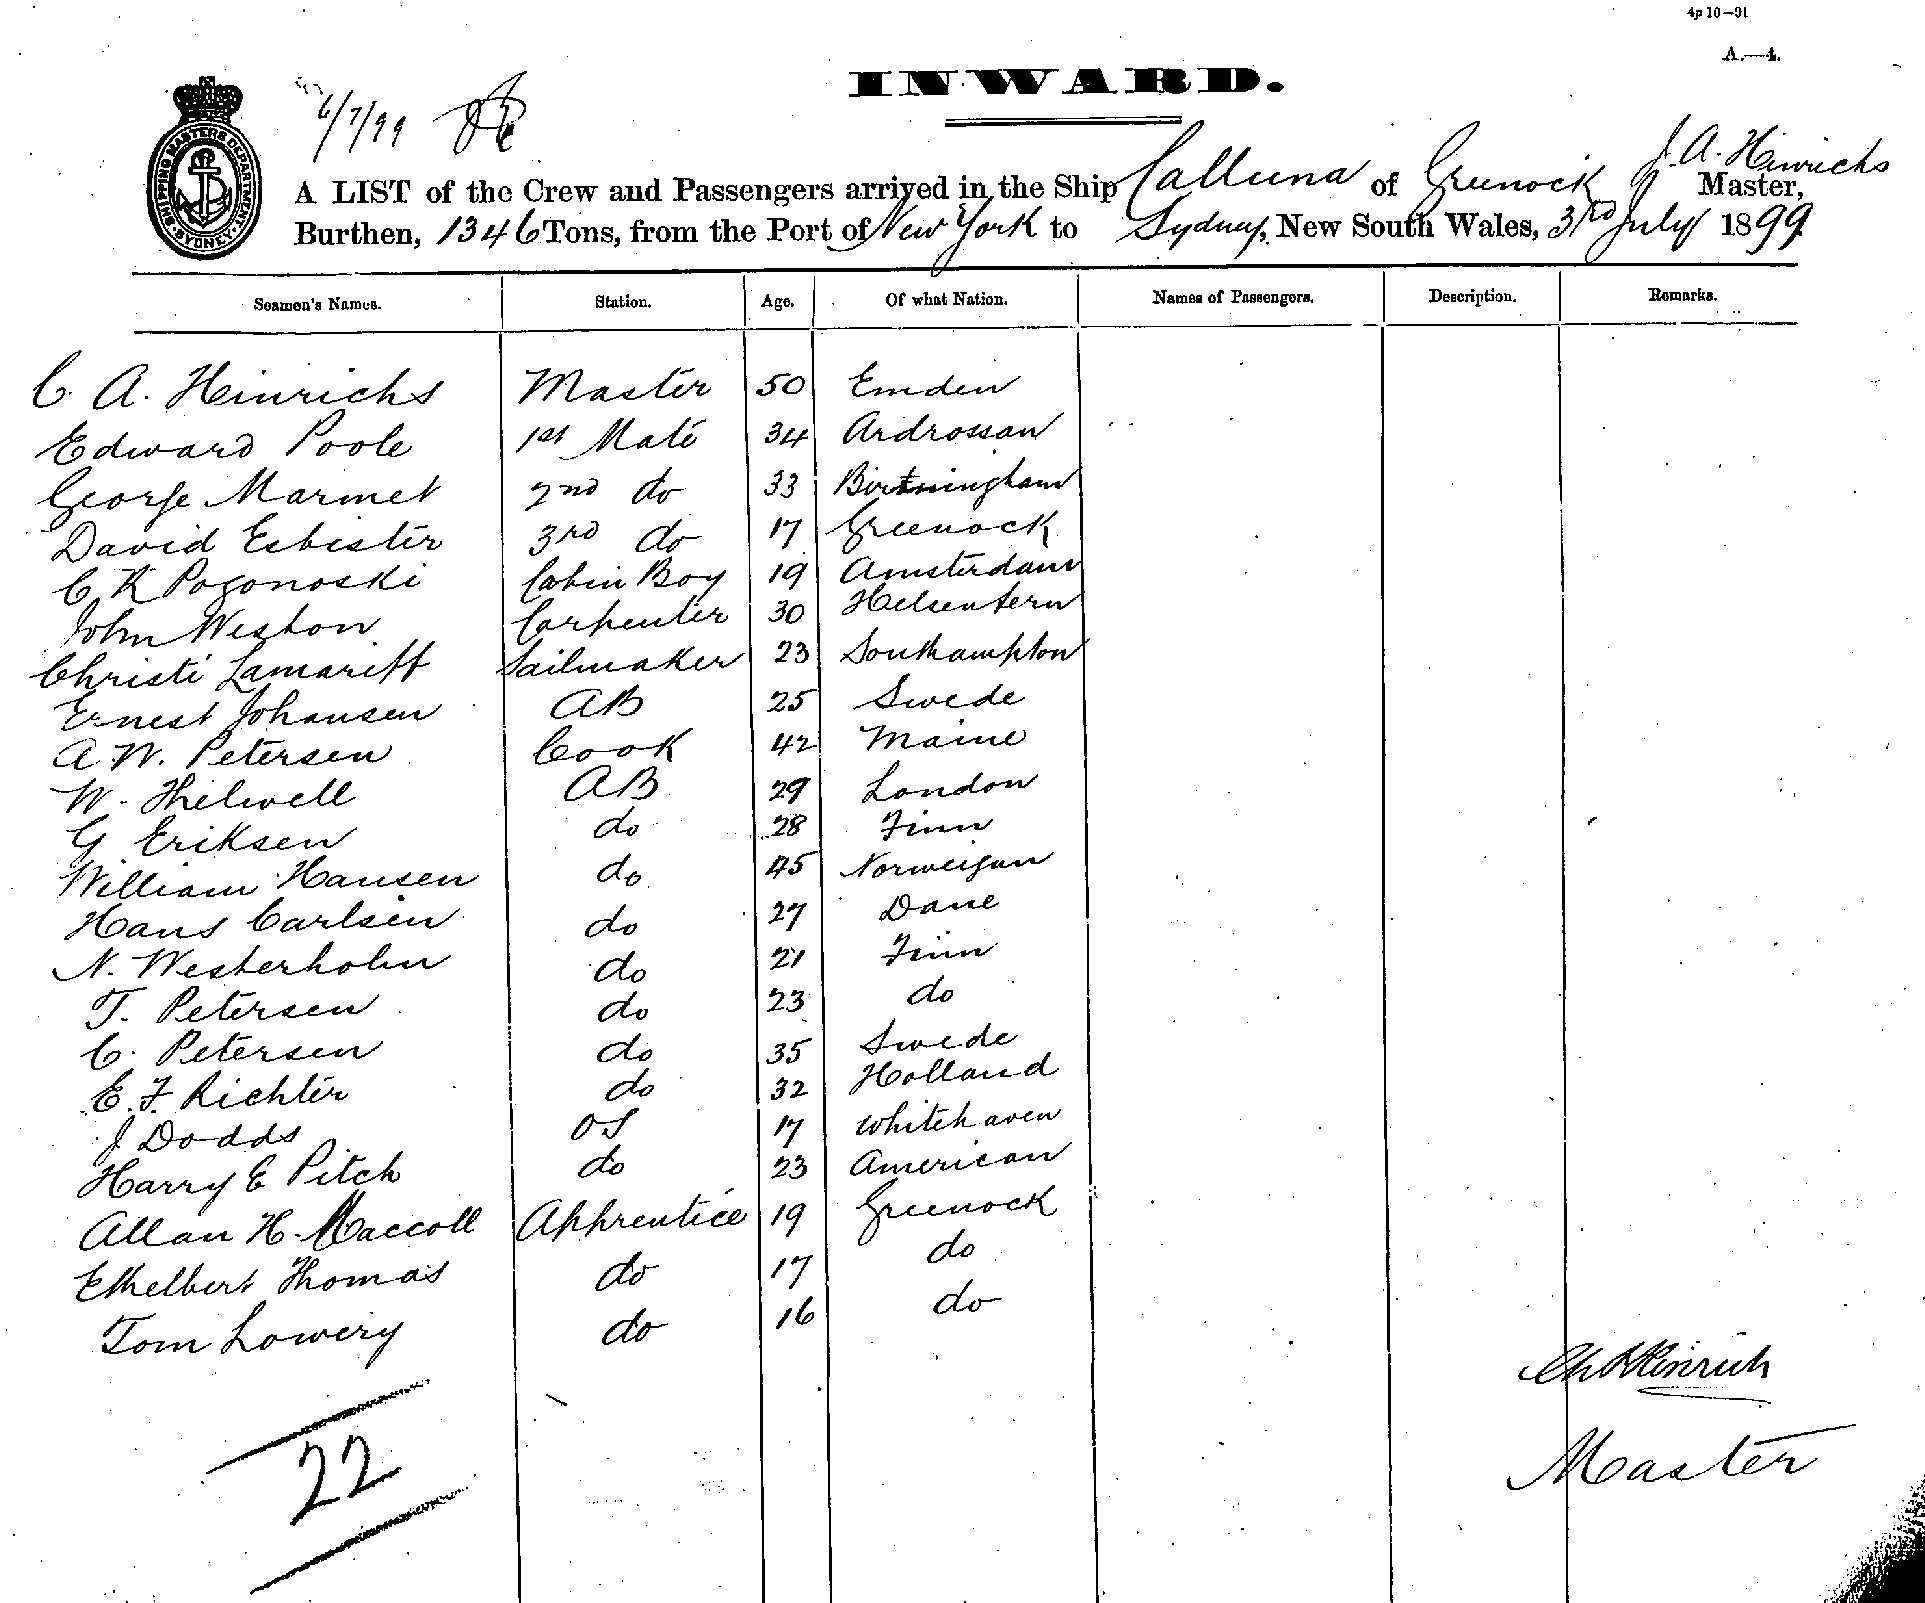 4p 10-91
A.—4.
INWARD.
6/7/99
SHIPPING MASTERS DEPARTMENT SYDNEY
A LIST of the Crew and Passengers arrived in the Ship Calluna of Greenock J. A. Hinrichs Master,
Burthen, 1346 Tons, from the Port of New York to Sydney, New South Wales, 3rd July 1899
Seamen's Names. Station. Age. Of what Nation. Names of Passengers. Description. Remarks.
C. A. Heinrichs Master 50 Emden
Edward Poole 1st Mate 34 Ardrossan
George Marmet 2nd do 33 Birmingham
David Esbister 3rd do 17 Greenock
C K Pogonoski Cabin Boy 19 Amsterdam
John Weston Carpenter 30
Christi Lamariff Sailmaker 23 Southampton
Ernest Johansen AB 25 Swede
A. W. Petersen Cook 42 Maine
W. Thelwell AB 29 London
G Eriksen do 28 Finn
William Hansen do 45 Norweigan
Hans Carlsen do 27 Dane
N. Westerholm do 21 Finn
T. Petersen do 23 do
C. Petersen do 35 Swede
E. F. Richter do 32 Holland
J Dodds OS 17 Whitehaven
Harry E Pitch do 23 American
Allan H. Maccoll Apprentice 19 Greenock
Ethelbert Thomas do 17 do
Tom Lowery do 16 do
Ch A Hinrich
22
Master